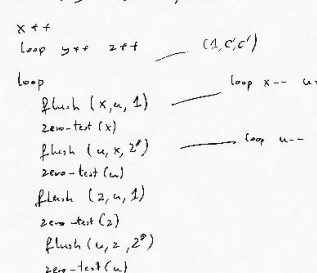 x++
loop y++ z++ (1, c', c')
loop
flush (x, u, 1) loop x-- u
zero-test (x)
flush (u, x, 2⁸) loop u--
zero-test (u)
flush (z, u, 1)
zero-test (z)
flush (u, z, 2⁸)
zero-test (u)